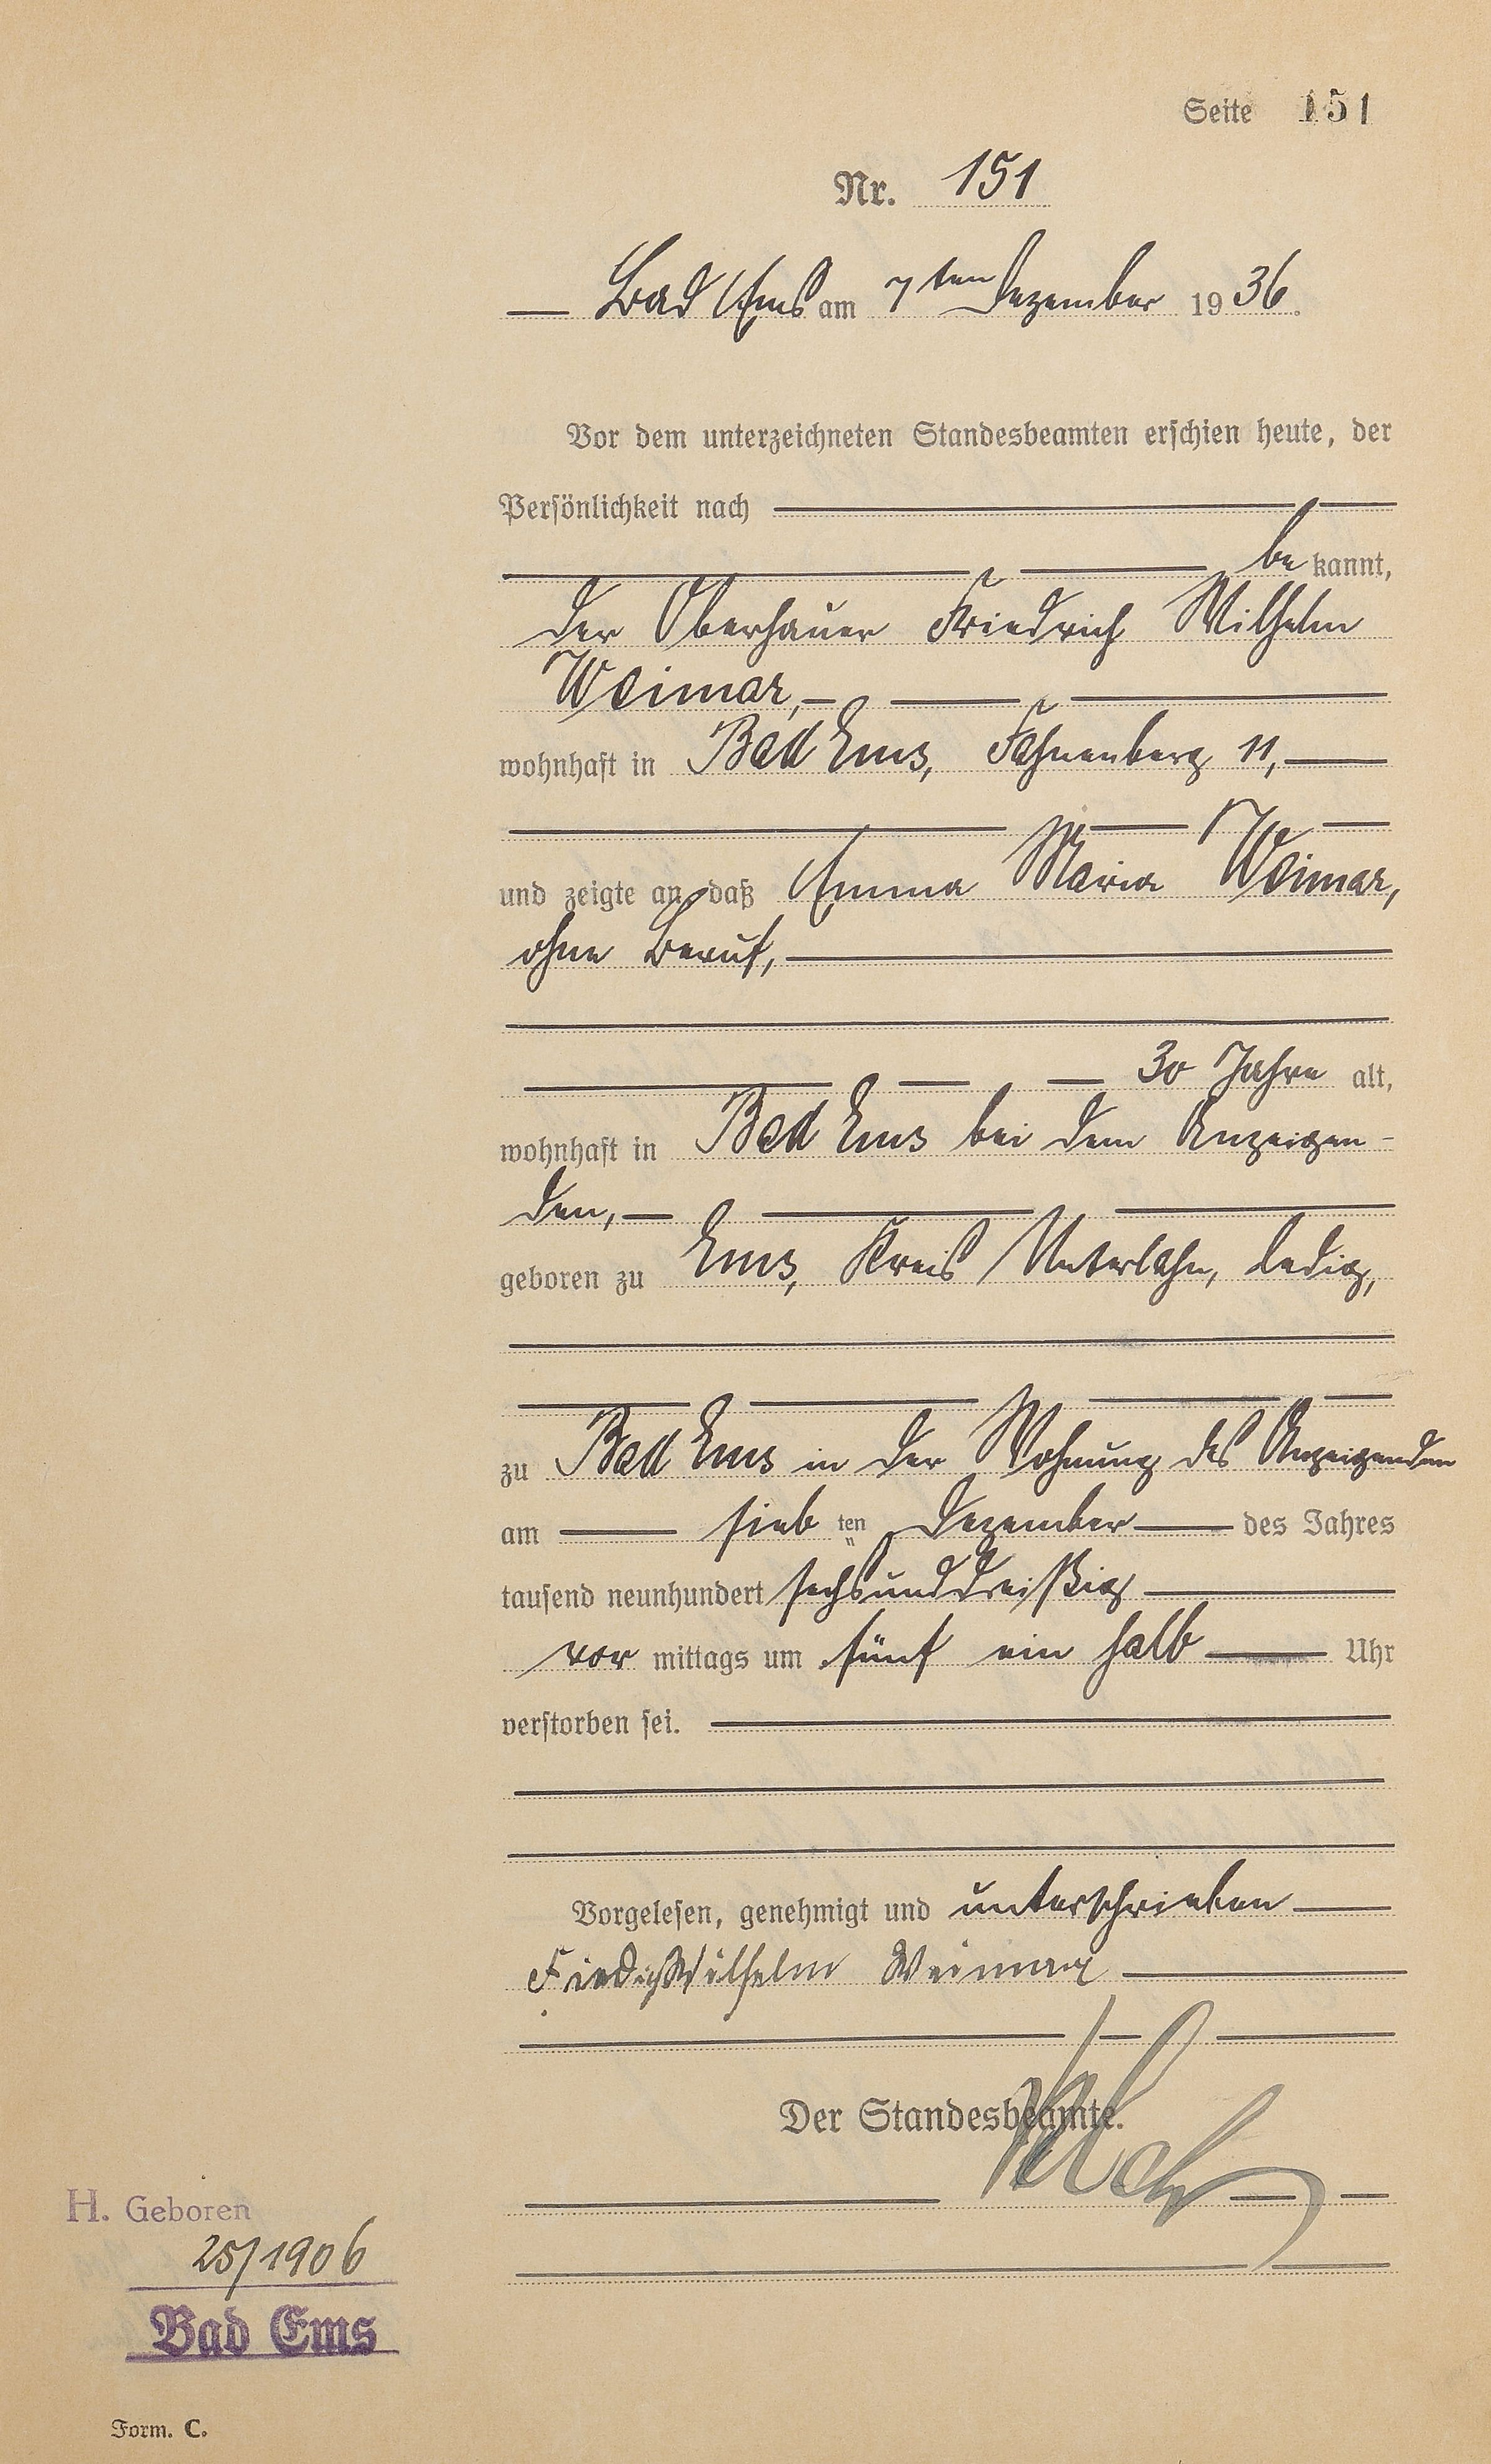 Seite 151
Nr. 151
Bad Ems am 7ten Dezember 1936.
Vor dem unterzeichneten Standesbeamten erschien heute, der
Persönlichkeit nach
be kannt,
der Oberhauer Friedrich Wilhelm
Weimar,
wohnhaft in Bad Ems, Fahnenberg 11,
und zeigte an, daß Emma Maria Weimar,
ohne Beruf,
30 Jahre alt,
wohnhaft in Bad Ems bei dem Anzeigen-
den,
geboren zu Ems, Kreis Unterlahn, ledig,
zu Bad Ems in der Wohnung des Anzeigenden
am sieb ten Dezember des Jahres
tausend neunhundert sechsunddreißig
vor mittags um fünf ein halb Uhr
verstorben sei.
Vorgelesen, genehmigt und unterschrieben
Friedrich Wilhelm Weimar
Der Standesbeamte.
H. Geboren
25/1906
Bad Ems
Form. C.